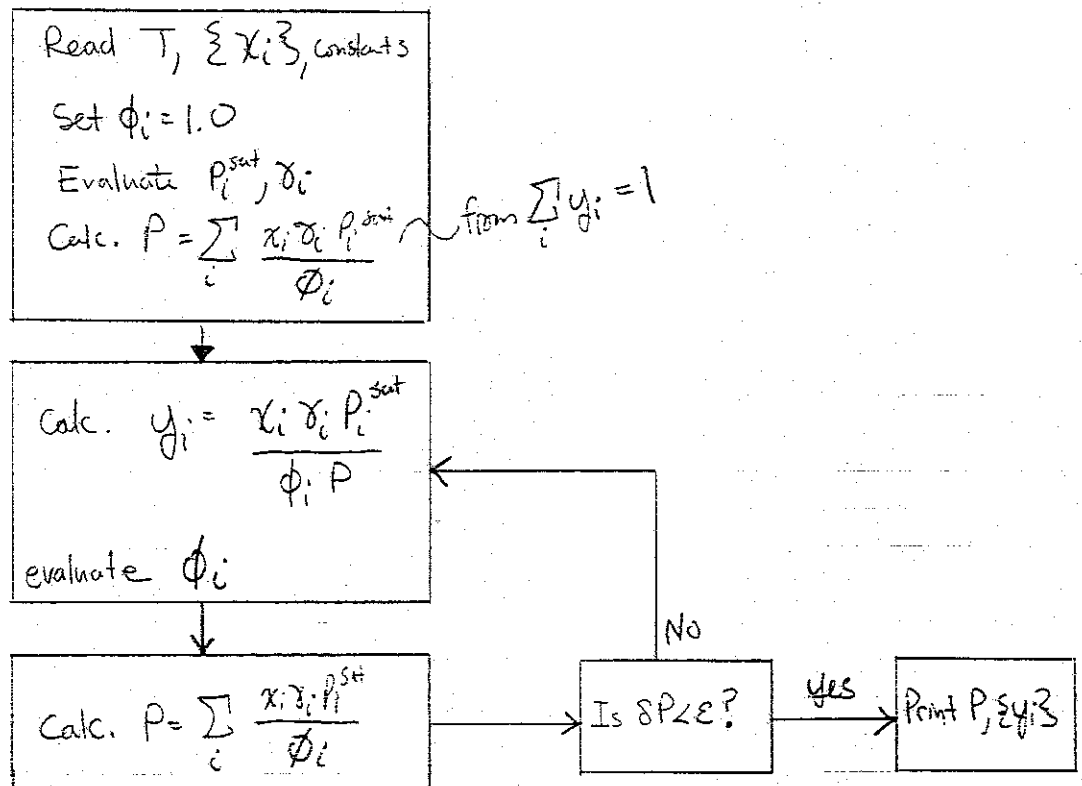 Read T, {xᵢ}, constants
Set ϕᵢ = 1.0
Evaluate Pᵢ^sat, γᵢ
Calc. P = ∑ᵢ xᵢ γᵢ Pᵢ^sat / ϕᵢ from ∑ᵢ yᵢ = 1
Calc. yᵢ = xᵢ γᵢ Pᵢ^sat / ϕᵢ P
evaluate ϕᵢ
No
Calc. P = ∑ᵢ xᵢ γᵢ Pᵢ^sat / ϕᵢ
Is δP < ε?
yes
Print P, {yᵢ}